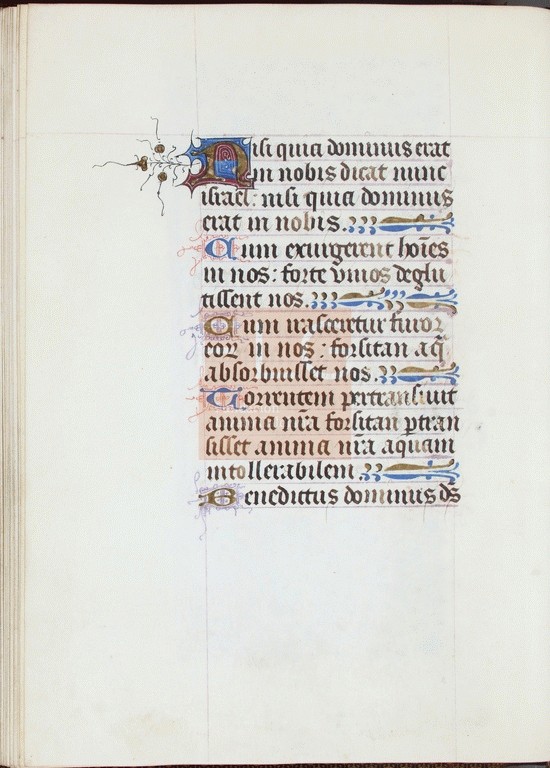 Nisi quia dominus erat
in nobis dicat nunc
israel: nisi quia dominus
erat in nobis.
Cum exurgerent hoi̅es
in nos: forte vivos deglu
tissent nos.
Cum irasceretur furor
eoꝝ in nos: forsitan aq̅
absorbuisset nos.
Torrentem pertransivit
anima nr̅a forsitan ꝑtran
sisset anima nr̅a aquam
intollerabilem.
Benedictus dominus ds̅